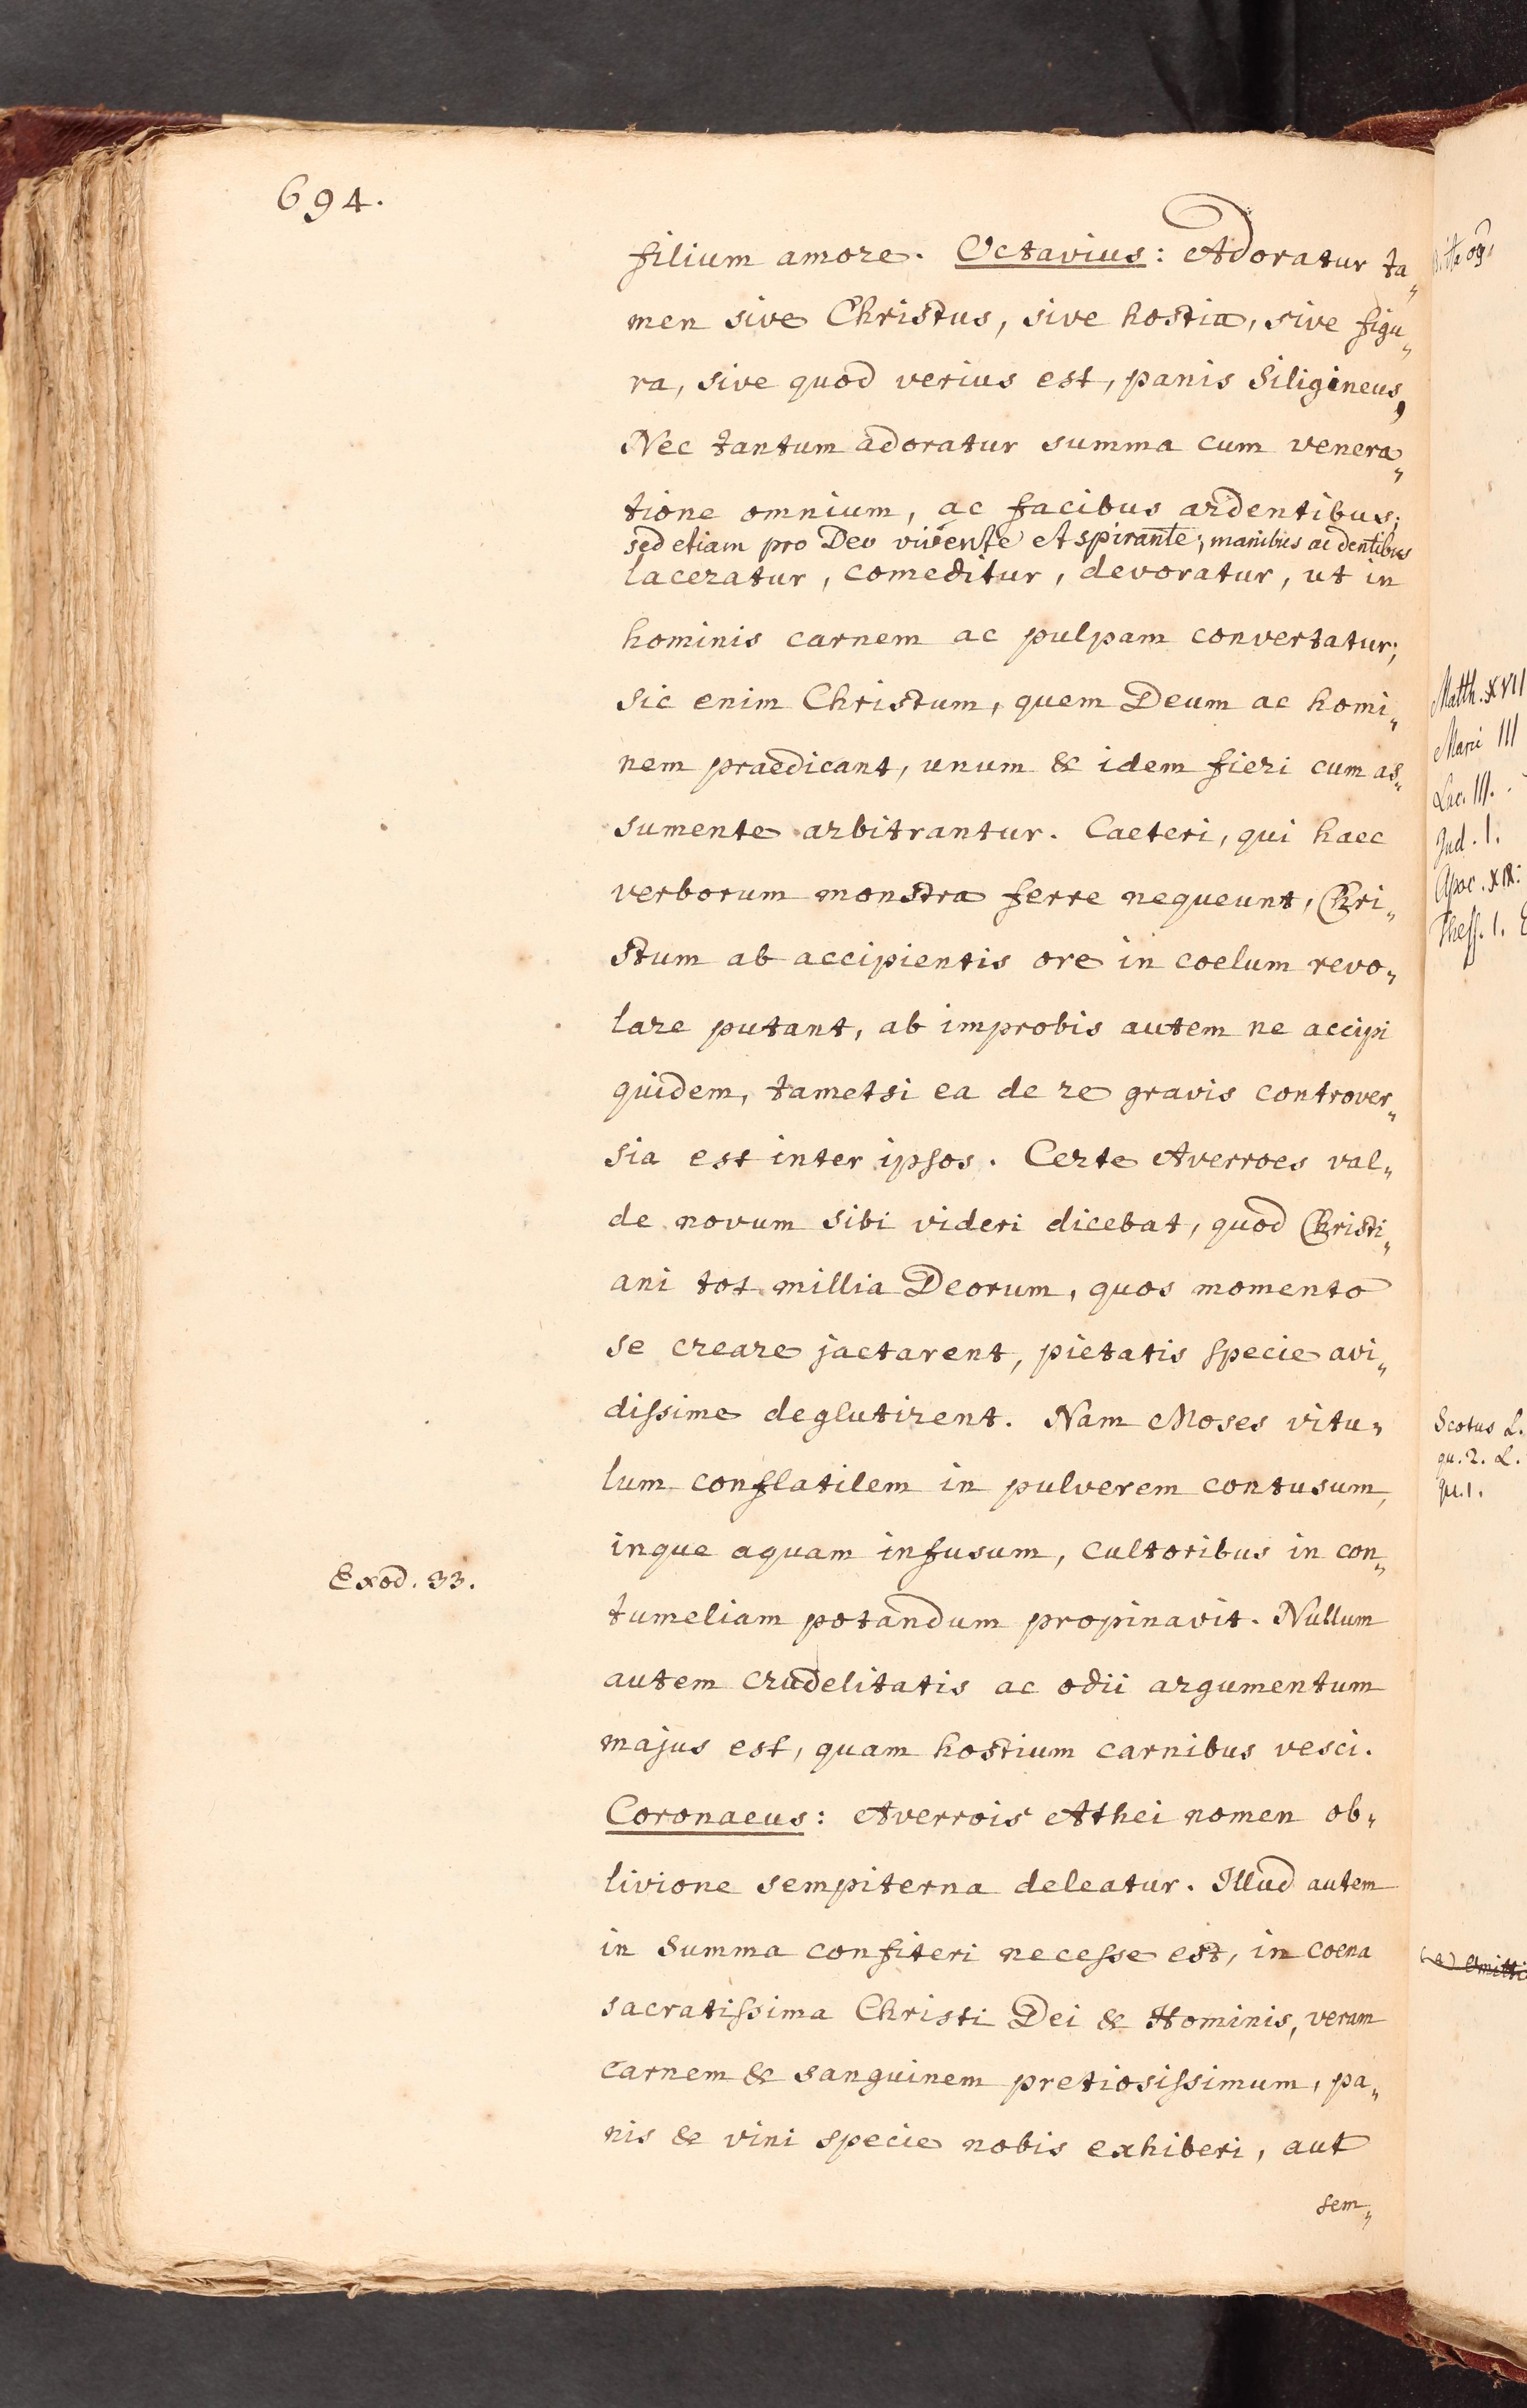 694.
filium amore. Octavius: Adoratur ta„
men sive Christus, sive hostia, sive figu„
ra, sive quod verius est, panis Siligineus,
Nec tantum adoratur summa cum venera„
tione omnium, ac facibus ardentibus;
sed etiam pro Deo vivente et spirante; manibus ac dentibus
laceratur, comeditur, devoratur, ut in
hominis carnem ac pulpam convertatur;
sic enim Christum, quem Deum ac homi„
nem praedicant, unum & idem fieri cum as„
sumente arbitrantur. Caeteri, qui haec
verborum monstra ferre nequeunt, Chri„
stum ab accipientis ore in coelum revo„
lare putant, ab improbis autem ne accipi
quidem, tametsi ea de re gravis controver„
sia est inter ipsos. Certe Averroes val„
de novum sibi videri dicebat, quod Christi„
ani tot millia Deorum, quos momento
se creare jactarent, pietatis specie avi„
dissime deglutirent. Nam Moses vitu„
lum conflatilem in pulverem contusum,
inque aquam infusum, cultoribus in con„
Exod. 33.
tumeliam potandum propinavit. Nullum
autem crudelitatis ac odii argumentum
majus est, quam hostium carnibus vesci.
Coronaeus: Averrois Athei nomen ob„
livione sempiterna deleatur. Illud autem
in Summa confiteri necesse est, in coena
sacratissima Christi Dei & Hominis, veram
carnem & sanguinem pretiosissimum, pa„
nis & vini specie nobis exhiberi, aut
sem„
Matth. XVII
Marci III
Luc. III.
Jud. I.
Apoc. XIX.
Thess. I.
Scotus L.
qu. 2. L.
qu. 1.